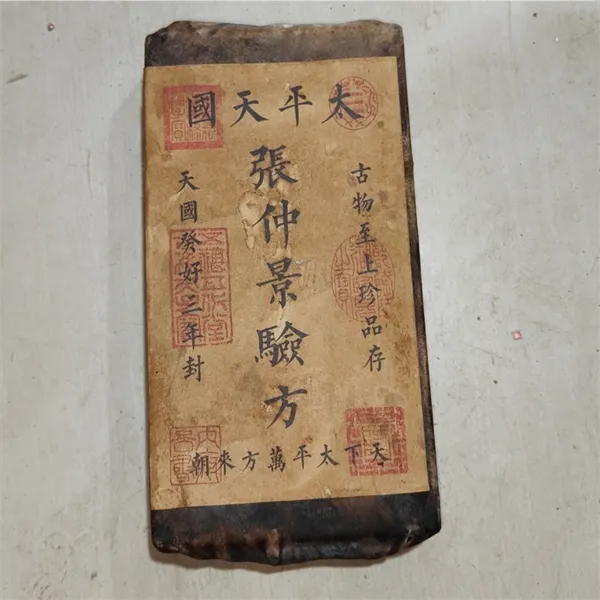 太平天國
古物至上珍品存
張仲景驗方
天國癸好三年封
天下太平萬方來朝